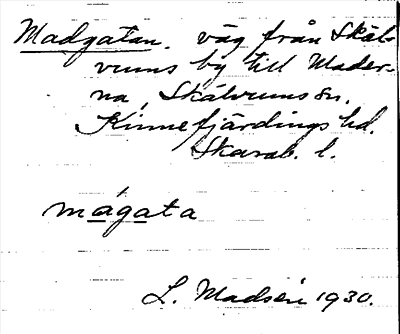 Madgatan. väg från Skäl-
vums by till Mader-
na, Skälvums sn,
Kinnefjärdings hd.
Skarab. l.
mágata
L. Madsén 1930.